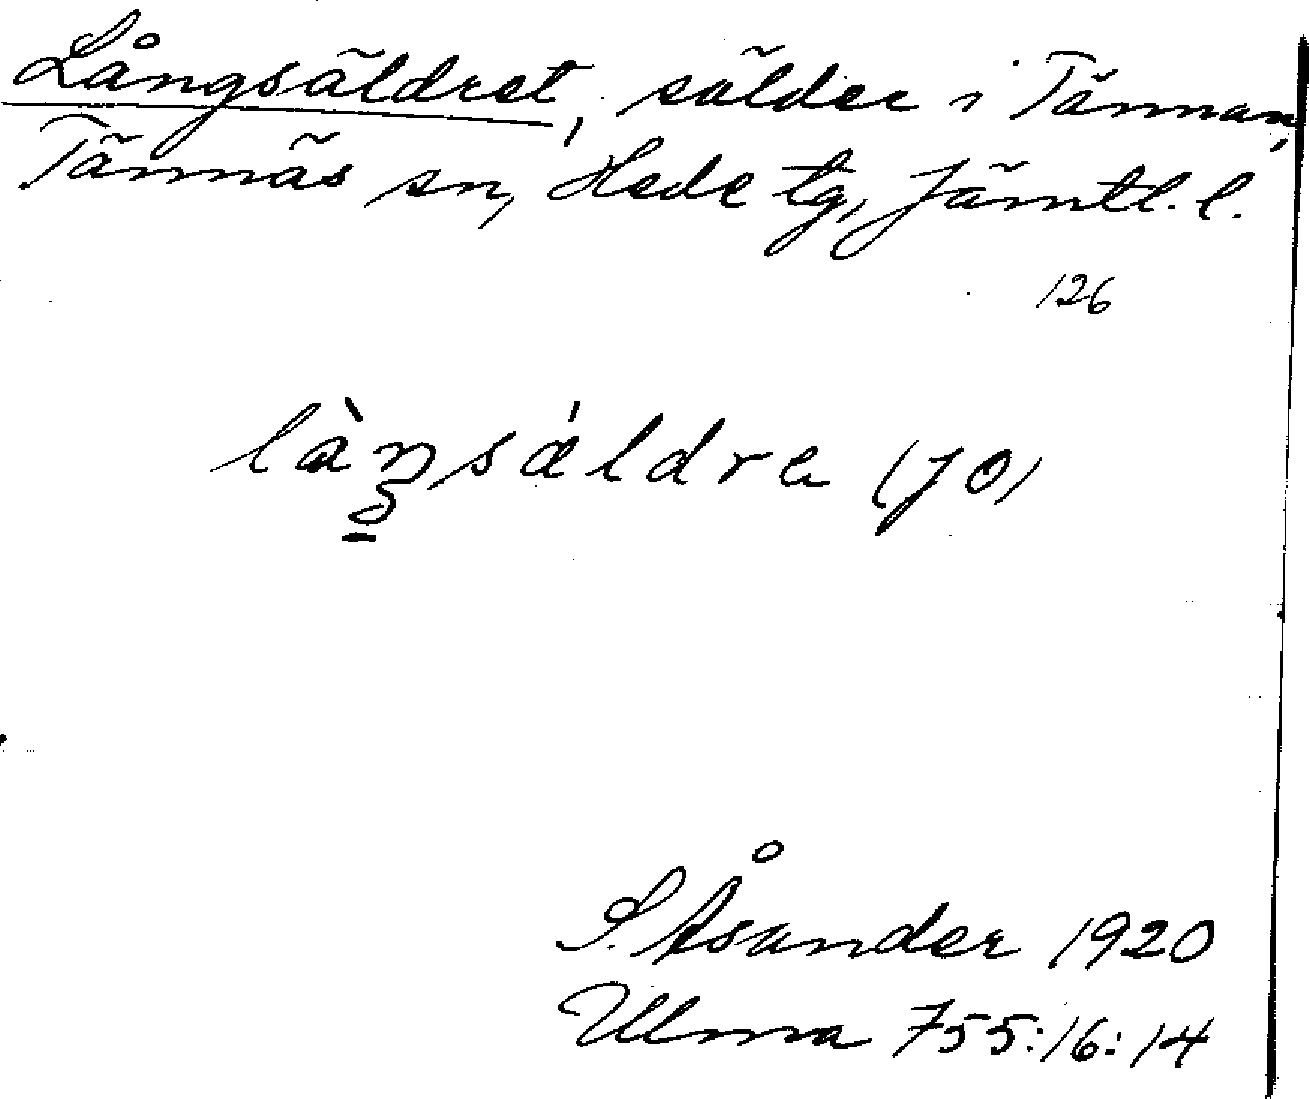 Långsäldret, sälder i Tännan,
Tännäs sn, Hede tg, Jämtl. l.
126
làŋsáldre (JO)
S. Åsander 1920
Ulma 755:16:14